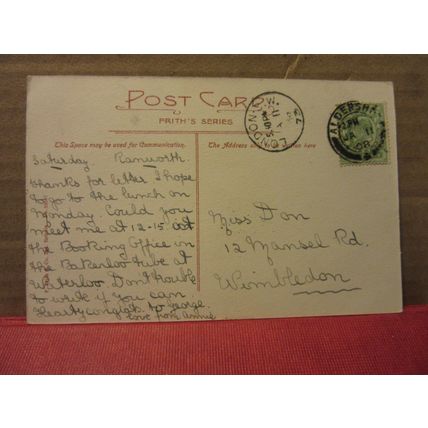 POST CARD
FRITH'S SERIES
This Space may be used for Communication.
The Address only to be written here
LONDON S.W.
ALDERSHOT
Saturday. Ramworth.
Thanks for letter I hope
to go to the lunch on
Monday. Could you
meet me at 12-15 at
the Booking Office in
the Bakerloo tube at
Waterloo. Don't trouble
to write if you can.
Hearty congrats. to George.
Love from Annie
Miss Don
12 Mansel Rd.
Wimbledon